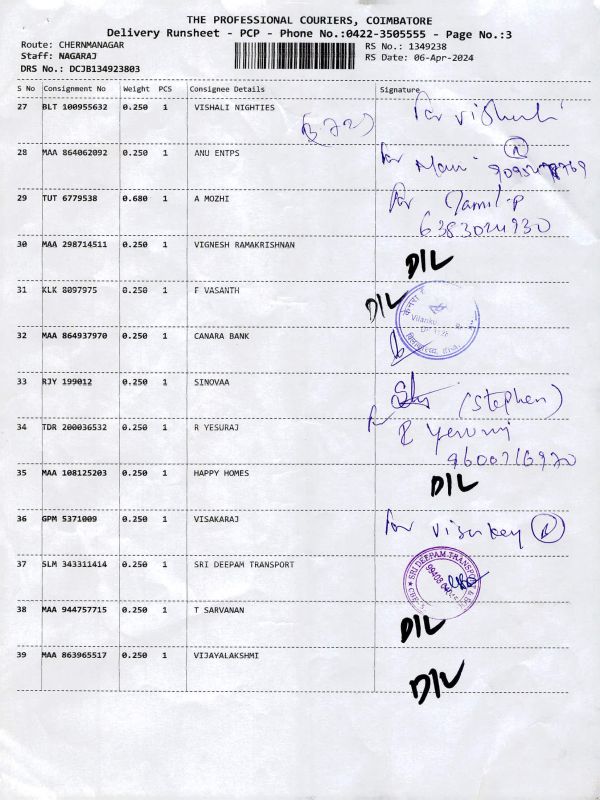 THE PROFESSIONAL COURIERS, COIMBATORE
Delivery Runsheet - PCP - Phone No.:0422-3505555 - Page No.:3
Route: CHERNMANAGAR
RS No.: 1349238
Staff: NAGARAJ
RS Date: 06-Apr-2024
DRS No.: DCJB134923803
S No Consignment No Weight PCS Consignee Details Signature
27 BLT 100955632 0.250 1 VISHALI NIGHTIES
28 MAA 864062092 0.250 1 ANU ENTPS
29 TUT 6779538 0.680 1 A MOZHI For Jamil.P
6383024930
30 MAA 298714511 0.250 1 VIGNESH RAMAKRISHNAN D/L
31 KLK 8097975 0.250 1 F VASANTH D/L
32 MAA 864937970 0.250 1 CANARA BANK
33 RJY 199012 0.250 1 SINOVAA (Stephen)
34 TDR 200036532 0.250 1 R YESURAJ
9600716970
35 MAA 108125203 0.250 1 HAPPY HOMES D/L
36 GPM 5371009 0.250 1 VISAKARAJ For
37 SLM 343311414 0.250 1 SRI DEEPAM TRANSPORT SRI DEEPAM TRANSPORT
38 MAA 944757715 0.250 1 T SARVANAN D/L
39 MAA 863965517 0.250 1 VIJAYALAKSHMI D/L